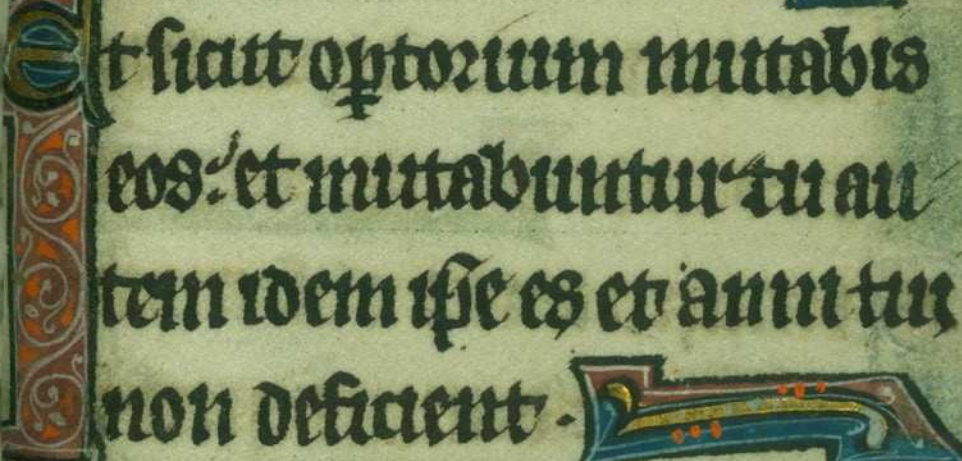 Et sicut oꝑtorium mutabis
eos: et mutabuntur tu au
tem idem ip̃e es et anni tui
non deficient.